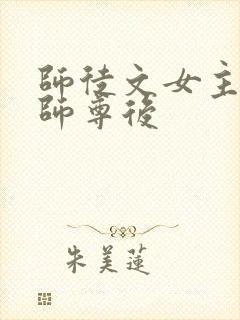 師徒文女主
師尊後
朱美蓮